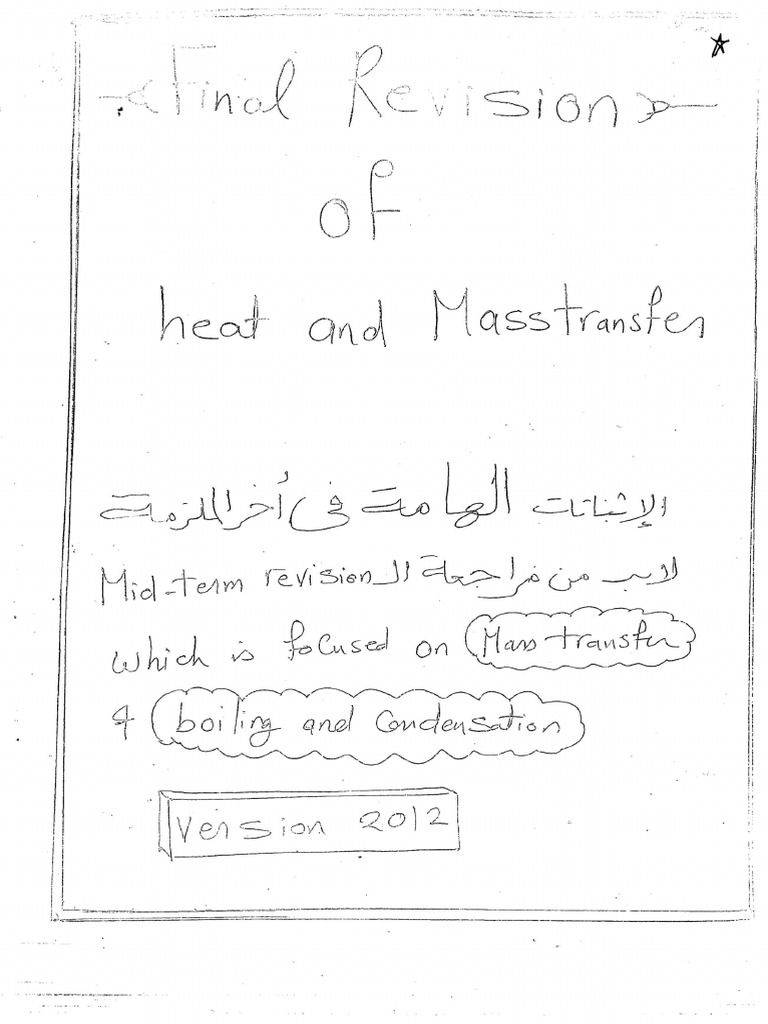 Final Revision
of
heat and Mass transfer
الإثباتات الهامة فى أخر الملزمة
لابد من مراجعة ال Mid-term revision
which is focused on Mass transfer
& boiling and Condensation
Version 2012